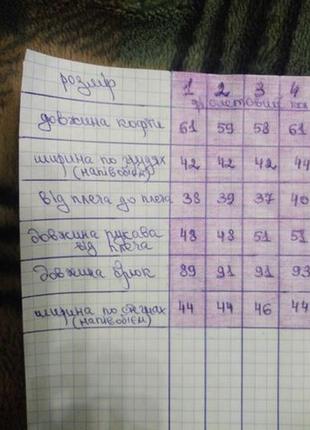 розмір 1 2 3 4
фіолетовий
довжина кофти 61 59 58 61
ширина по грудях 42 42 42 44
(напівобєм)
від плеча до плеча 38 39 37 40
довжина рукава 48 48 51 51
від плеча
довжина брюк 89 91 91 93
ширина по стегнах 44 44 46 44
(напівобєм)